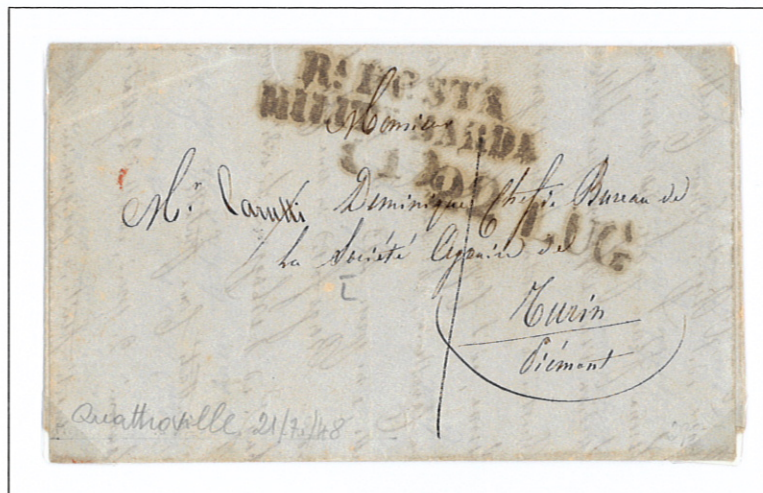 R.ᴬ POSTA
MILITE SARDA
LUG
Monsieur
M.ʳ Carutti Dominique Chef de Bureau de
La Société Agraire de
Turin
Piémont
Quattroville 21/7/48